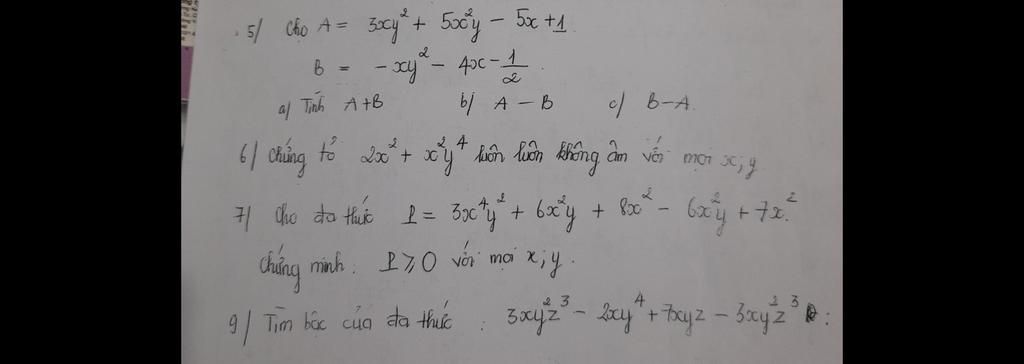 5/ Cho A = 3xy² + 5x²y - 5x + 1
B = -xy² - 4x - 1/2
a/ Tính A+B b/ A - B c/ B-A
6/ Chứng tỏ 2x² + x²y⁴ luôn luôn không âm với mọi x; y
7/ Cho đa thức P = 3x⁴y² + 6x²y + 8x² - 6x²y + 7x².
Chứng minh: P ⩾ 0 với mọi x; y.
9/ Tìm bậc của đa thức : 3xy²z³ - 2xy⁴ + 7xyz - 3xy²z³ :